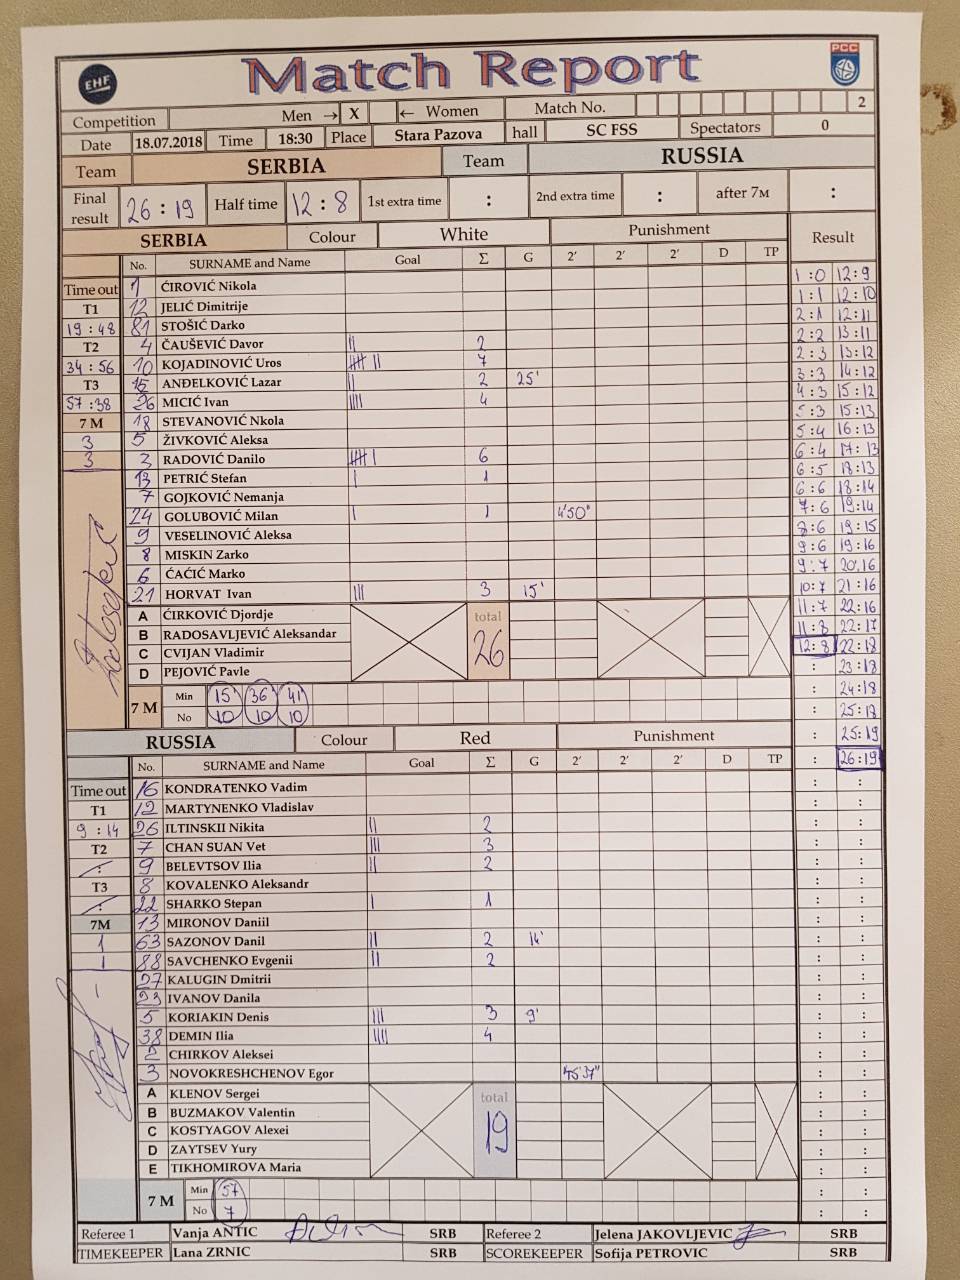 EHF
Match Report
PCC
Competition Men → X ← Women Match No. 2
Date 18.07.2018 Time 18:30 Place Stara Pazova hall SC FSS Spectators 0
Team SERBIA Team RUSSIA
Final result 26 : 19 Half time 12 : 8 1st extra time : 2nd extra time : after 7M :
SERBIA Colour White Punishment Result
No. SURNAME and Name Goal Σ G 2′ 2′ 2′ D TP
1 : 0 12 : 9
Time out 1 ĆIROVIĆ Nikola
1 : 1 12 : 10
T1 12 JELIĆ Dimitrije
2 : 1 12 : 11
19 : 48 81 STOŠIĆ Darko
2 : 2 13 : 11
T2 4 ČAUŠEVIĆ Davor || 2
2 : 3 13 : 12
34 : 56 10 KOJADINOVIĆ Uros |||| || 7
3 : 3 14 : 12
T3 15 ANĐELKOVIĆ Lazar || 2 25'
4 : 3 15 : 12
57 : 38 26 MICIĆ Ivan |||| 4
5 : 3 15 : 13
7 M 18 STEVANOVIĆ Nkola
5 : 4 16 : 13
3 5 ŽIVKOVIĆ Aleksa
6 : 4 17 : 13
3 3 RADOVIĆ Danilo |||| | 6
6 : 5 18 : 13
13 PETRIĆ Stefan | 1
6 : 6 18 : 14
7 GOJKOVIĆ Nemanja
7 : 6 19 : 14
24 GOLUBOVIĆ Milan | 1 4'50"
8 : 6 19 : 15
9 VESELINOVIĆ Aleksa
9 : 6 19 : 16
8 MISKIN Zarko
9 : 7 20 : 16
6 ĆAĆIĆ Marko
10 : 7 21 : 16
21 HORVAT Ivan ||| 3 15'
11 : 7 22 : 16
A ĆIRKOVIĆ Djordje total
11 : 8 22 : 17
B RADOSAVLJEVIĆ Aleksandar 26
12 : 8 22 : 18
C CVIJAN Vladimir
: 23 : 18
D PEJOVIĆ Pavle
: 24 : 18
7 M Min 15' 36' 41'
: 25 : 18
No 10 10 10
: 25 : 19
RUSSIA Colour Red Punishment
: 26 : 19
No. SURNAME and Name Goal Σ G 2′ 2′ 2′ D TP
Time out 16 KONDRATENKO Vadim : :
T1 12 MARTYNENKO Vladislav : :
9 : 14 26 ILTINSKII Nikita || 2 : :
T2 7 CHAN SUAN Vet ||| 3 : :
: 9 BELEVTSOV Ilia || 2 : :
T3 8 KOVALENKO Aleksandr : :
: 22 SHARKO Stepan | 1 : :
7M 13 MIRONOV Daniil : :
1 63 SAZONOV Danil || 2 14' : :
1 88 SAVCHENKO Evgenii || 2 : :
27 KALUGIN Dmitrii : :
23 IVANOV Danila : :
5 KORIAKIN Denis ||| 3 9' : :
38 DEMIN Ilia |||| 4 : :
2 CHIRKOV Aleksei : :
3 NOVOKRESHCHENOV Egor 45'37" : :
A KLENOV Sergei total : :
B BUZMAKOV Valentin 19 : :
C KOSTYAGOV Alexei : :
D ZAYTSEV Yury : :
E TIKHOMIROVA Maria : :
7 M Min 57 : :
No 7 : :
Referee 1 Vanja ANTIC SRB Referee 2 Jelena JAKOVLJEVIC SRB
TIMEKEEPER Lana ZRNIC SRB SCOREKEEPER Sofija PETROVIC SRB